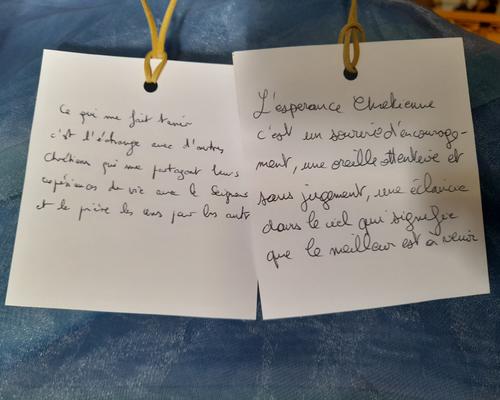 Ce qui me fait tenir
c'est l'échange avec d'autres
Chrétiens qui me partagent leurs
expériences de vie avec le Seigneur
et la prière les uns pour les autres
L'espérance Chrétienne
c'est un sourire d'encourage-
ment, une oreille attentive et
sans jugement, une éclaircie
dans le ciel qui signifie
que le meilleur est à venir